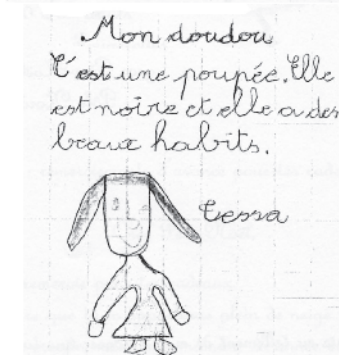 Mon doudou
C'est une poupée. Elle
est noire et elle a des
beaux habits.
Tessa